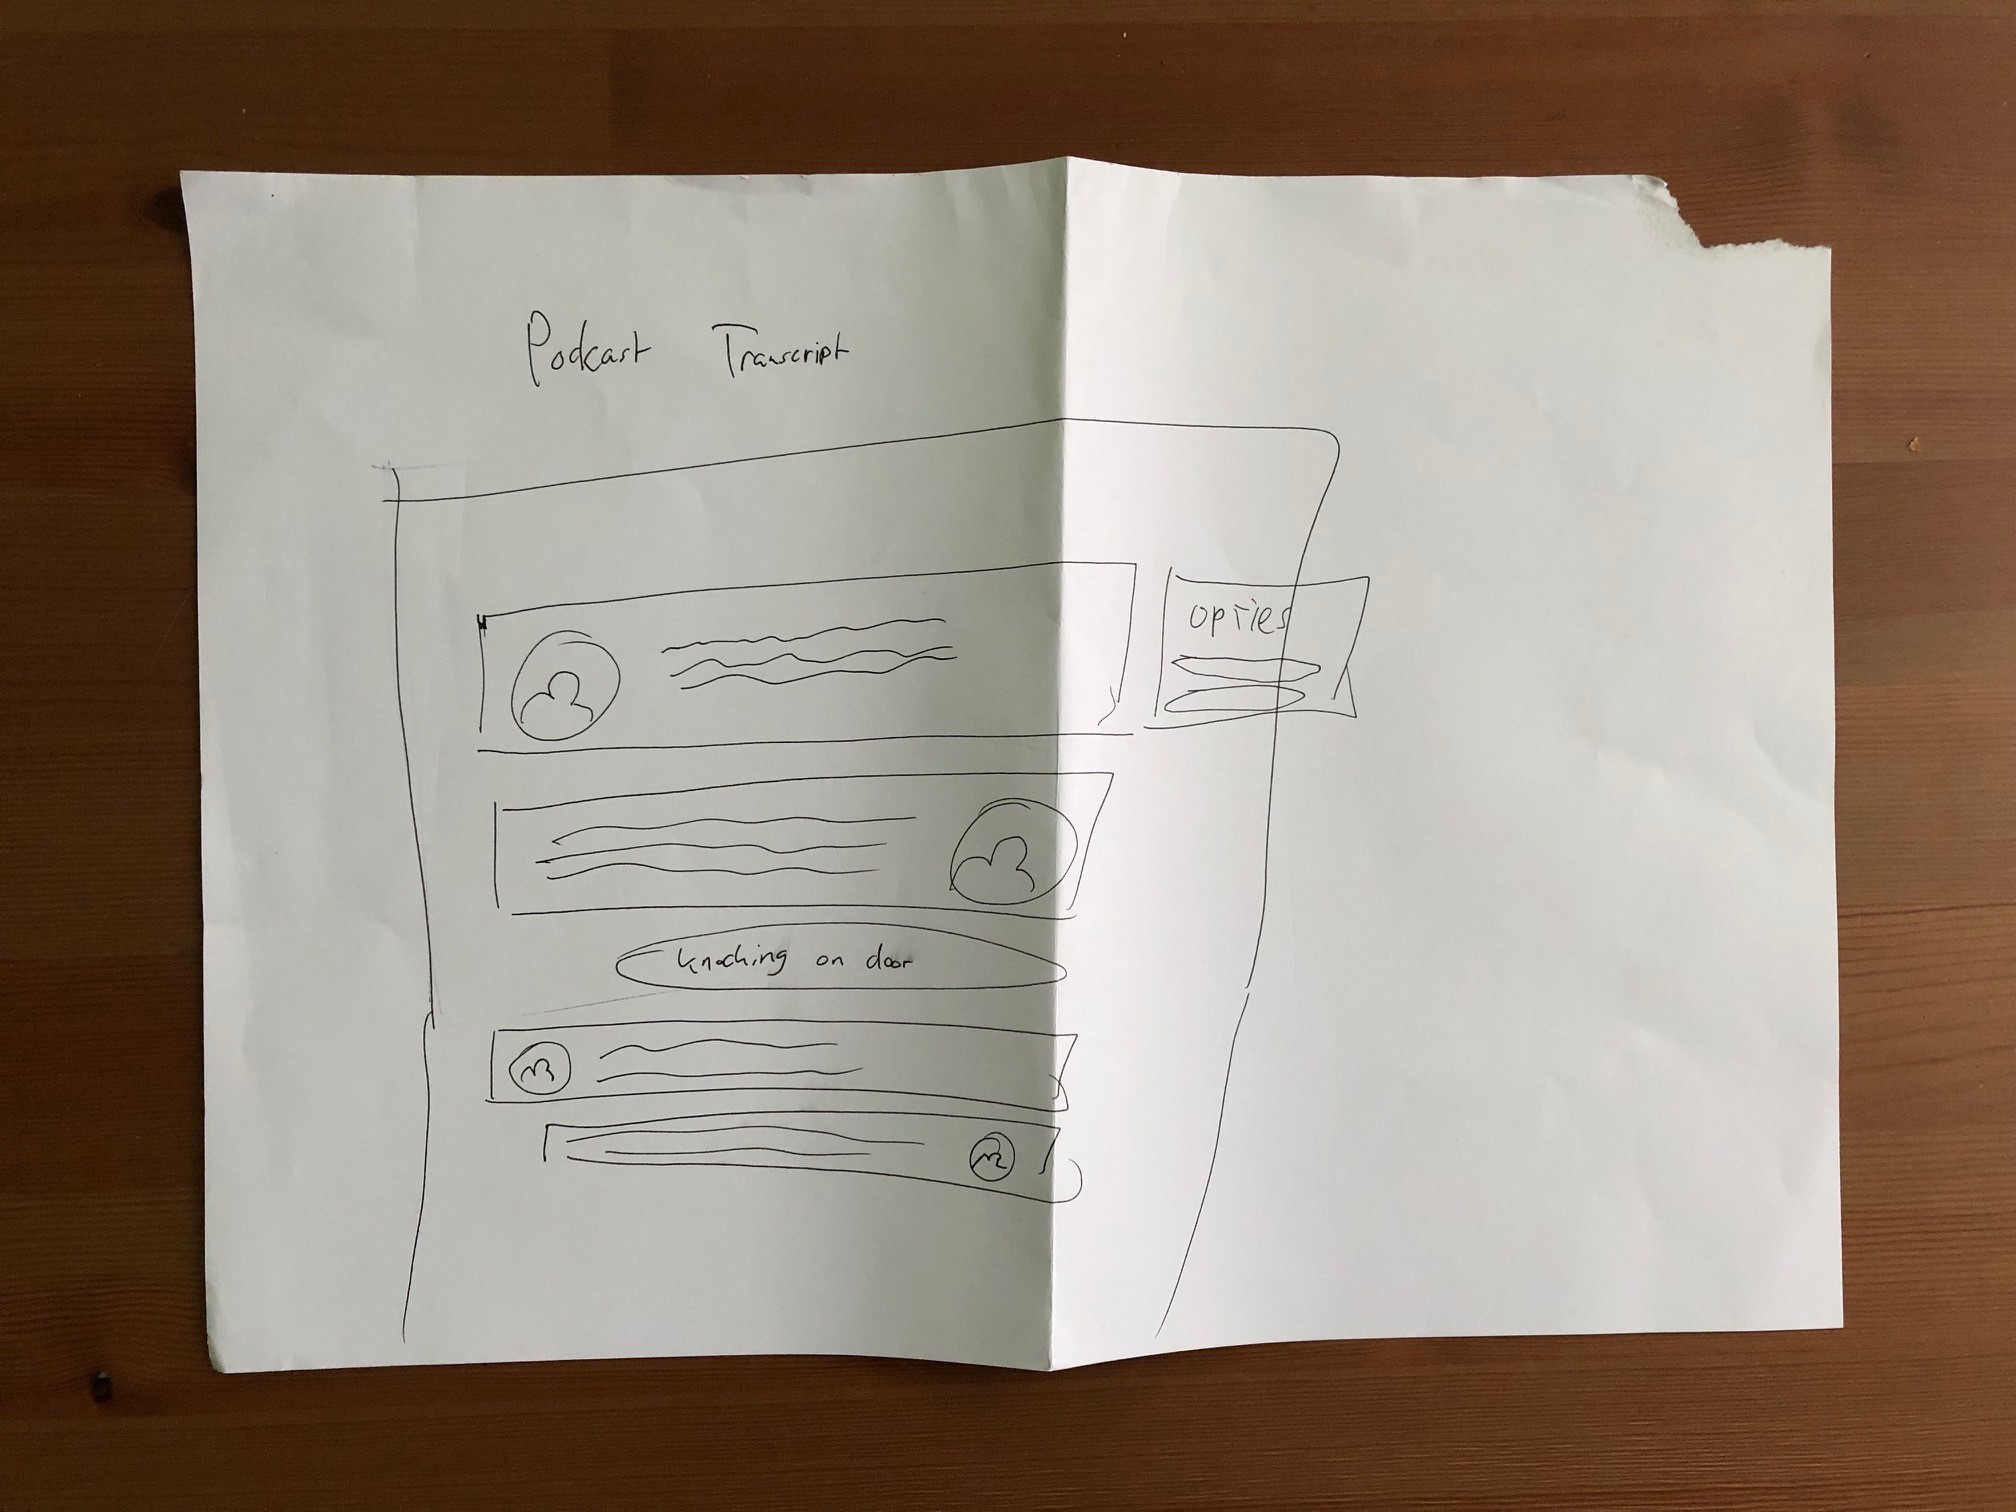 Podcast Transcript
opties
knocking on door